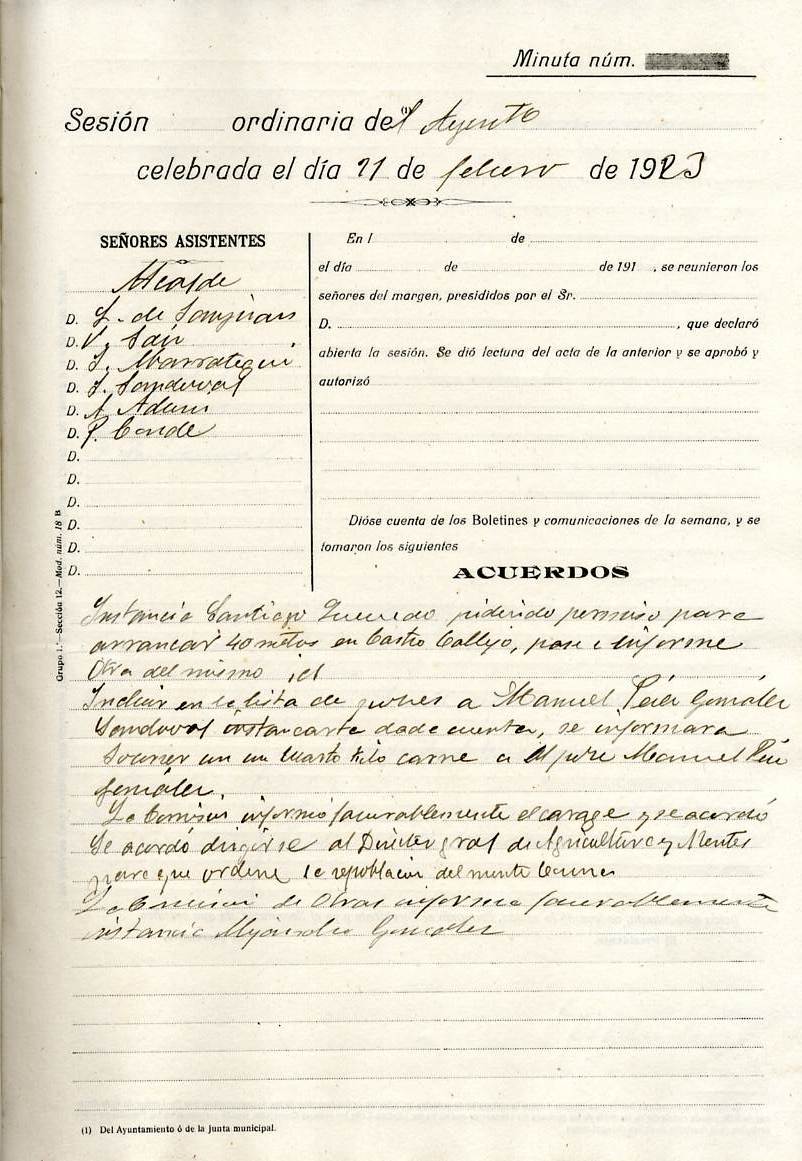 Minuta núm.
Sesión ordinaria del (1) Ayunto
celebrada el día 21 de febrero de 1923
SEÑORES ASISTENTES
Alcalde
D. L. de
D. V. Saiz
D. S. Marrategui
D. S. Sandoval
D. A. Adam
D. P. Conde
D.
D.
D.
D.
D.
D.
En l de
el día de de 191 , se reunieron los
señores del margen, presididos por el Sr.
D. , que declaró
abierta la sesión. Se dió lectura del acta de la anterior y se aprobó y
autorizó
Dióse cuenta de los Boletines y comunicaciones de la semana, y se
tomaron los siguientes
ACUERDOS
Instancia Santiago Quevedo pidiendo permiso para
arrancar 40 metos en Castro Callejo, pase a informe
Otra del mismo id
Incluir en la lista de pobres a Manuel Pérez González
Sandoval instancarte dade cuenta, se informara
Socorrer con un cuarto kilo carne a el pobre Manuel Pérez
González.
La Comision informó favorablemente el garage y se acordó
Se acordó dirigirse al Director gral de Agricultura y Montes
para que ordene la repoblacion del monte
La Comision de Obras informa favorablemente
instancia Alejandro González
Grupo 1.º—Sección 12.—Mod. núm. 18 B
(1) Del Ayuntamiento ó de la Junta municipal.